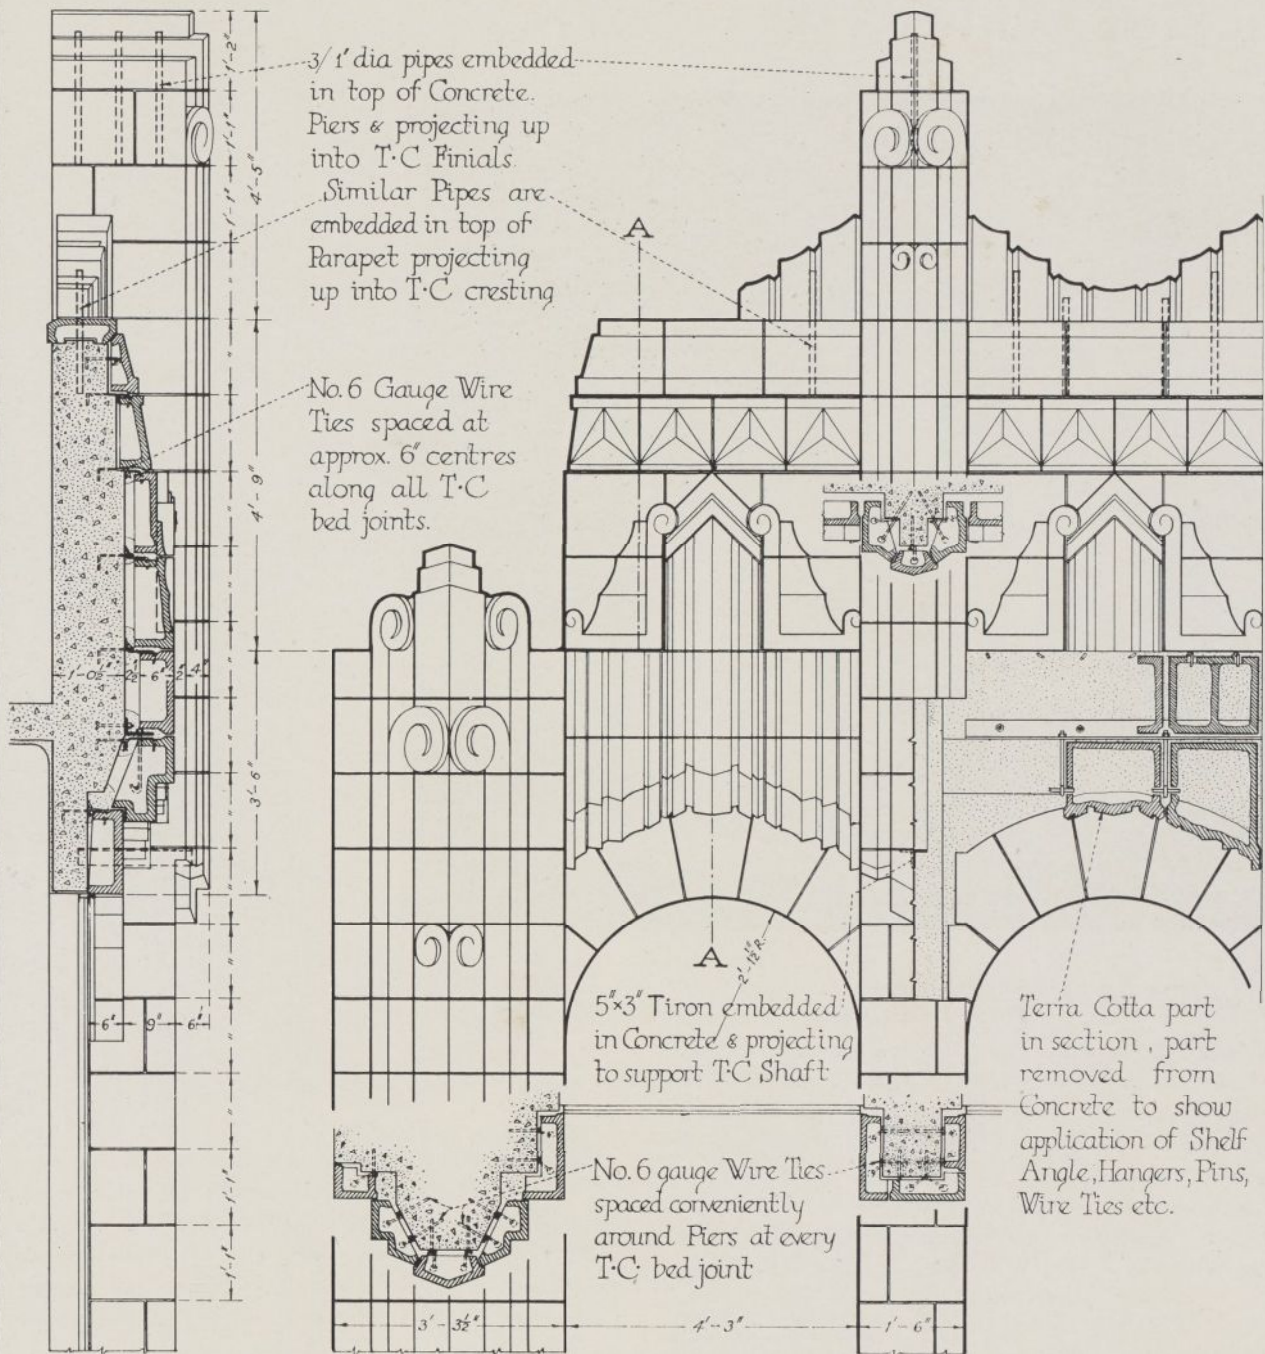 3/1" dia pipes embedded
in top of Concrete.
Piers & projecting up
into T·C Finials.
Similar Pipes are
embedded in top of
Parapet projecting
up into T·C cresting
A
No. 6 Gauge Wire
Ties spaced at
approx. 6" centres
along all T·C
bed joints.
1'-2"
1'-1"
1'-1"
4'-5"
4'-9"
3'-6"
1'-0½" 2½" 6" 2" 4"
A
2'-1½" R.
5"×3" Tiron embedded
in Concrete & projecting
to support T·C Shaft
Terra Cotta part
in section, part
removed from
Concrete to show
application of Shelf
Angle, Hangers, Pins,
Wire Ties etc.
6" 9" 6"
1'-1"
1'-1"
No. 6 gauge Wire Ties
spaced conveniently
around Piers at every
T·C· bed joint
3'-3½" 4'-3" 1'-6"